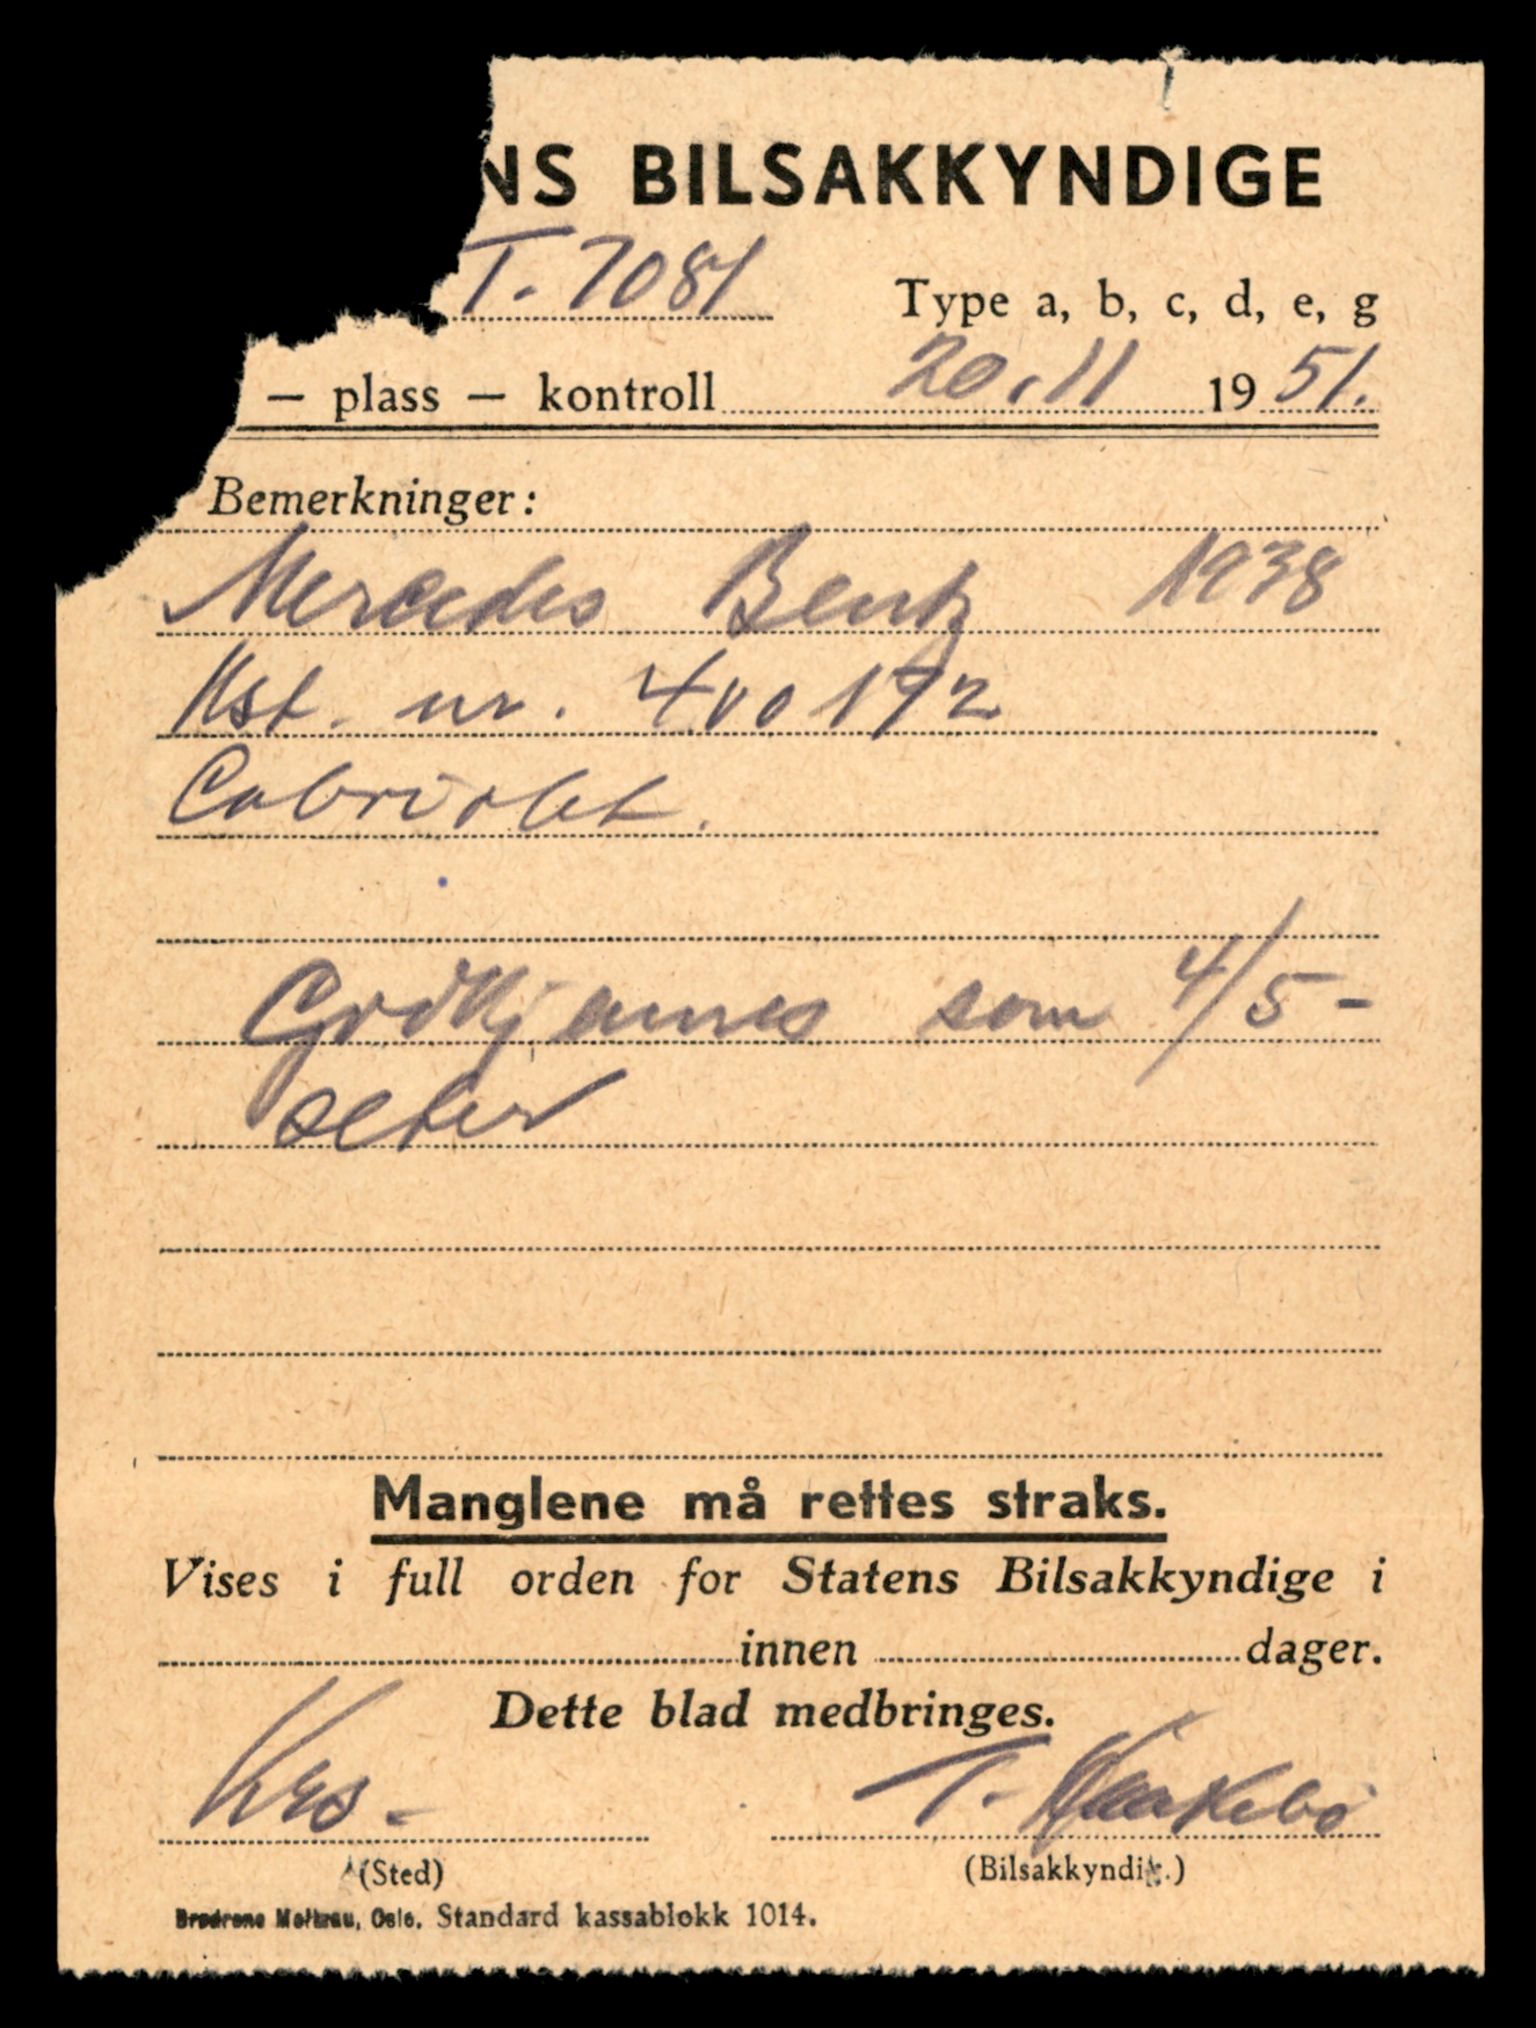 NS BILSAKKYNDIGE
T. 7081
Type a, b, c, d, e, g
– plass – kontroll 20.11 1951.
Bemerkninger:
Mercedes Bentz 1938
Kst. nr. 400172
Cabriolet.
Godkjennes som 4/5-
seter
Manglene må rettes straks.
Vises i full orden for Statens Bilsakkyndige i
innen dager.
Dette blad medbringes.
Krs. T.
(Sted) (Bilsakkyndig.)
Brødrene Oslo. Standard kassablokk 1014.